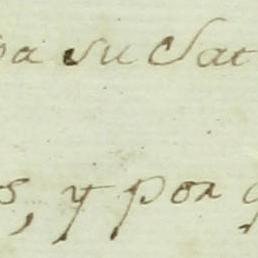 pa su Sat
s, y por q